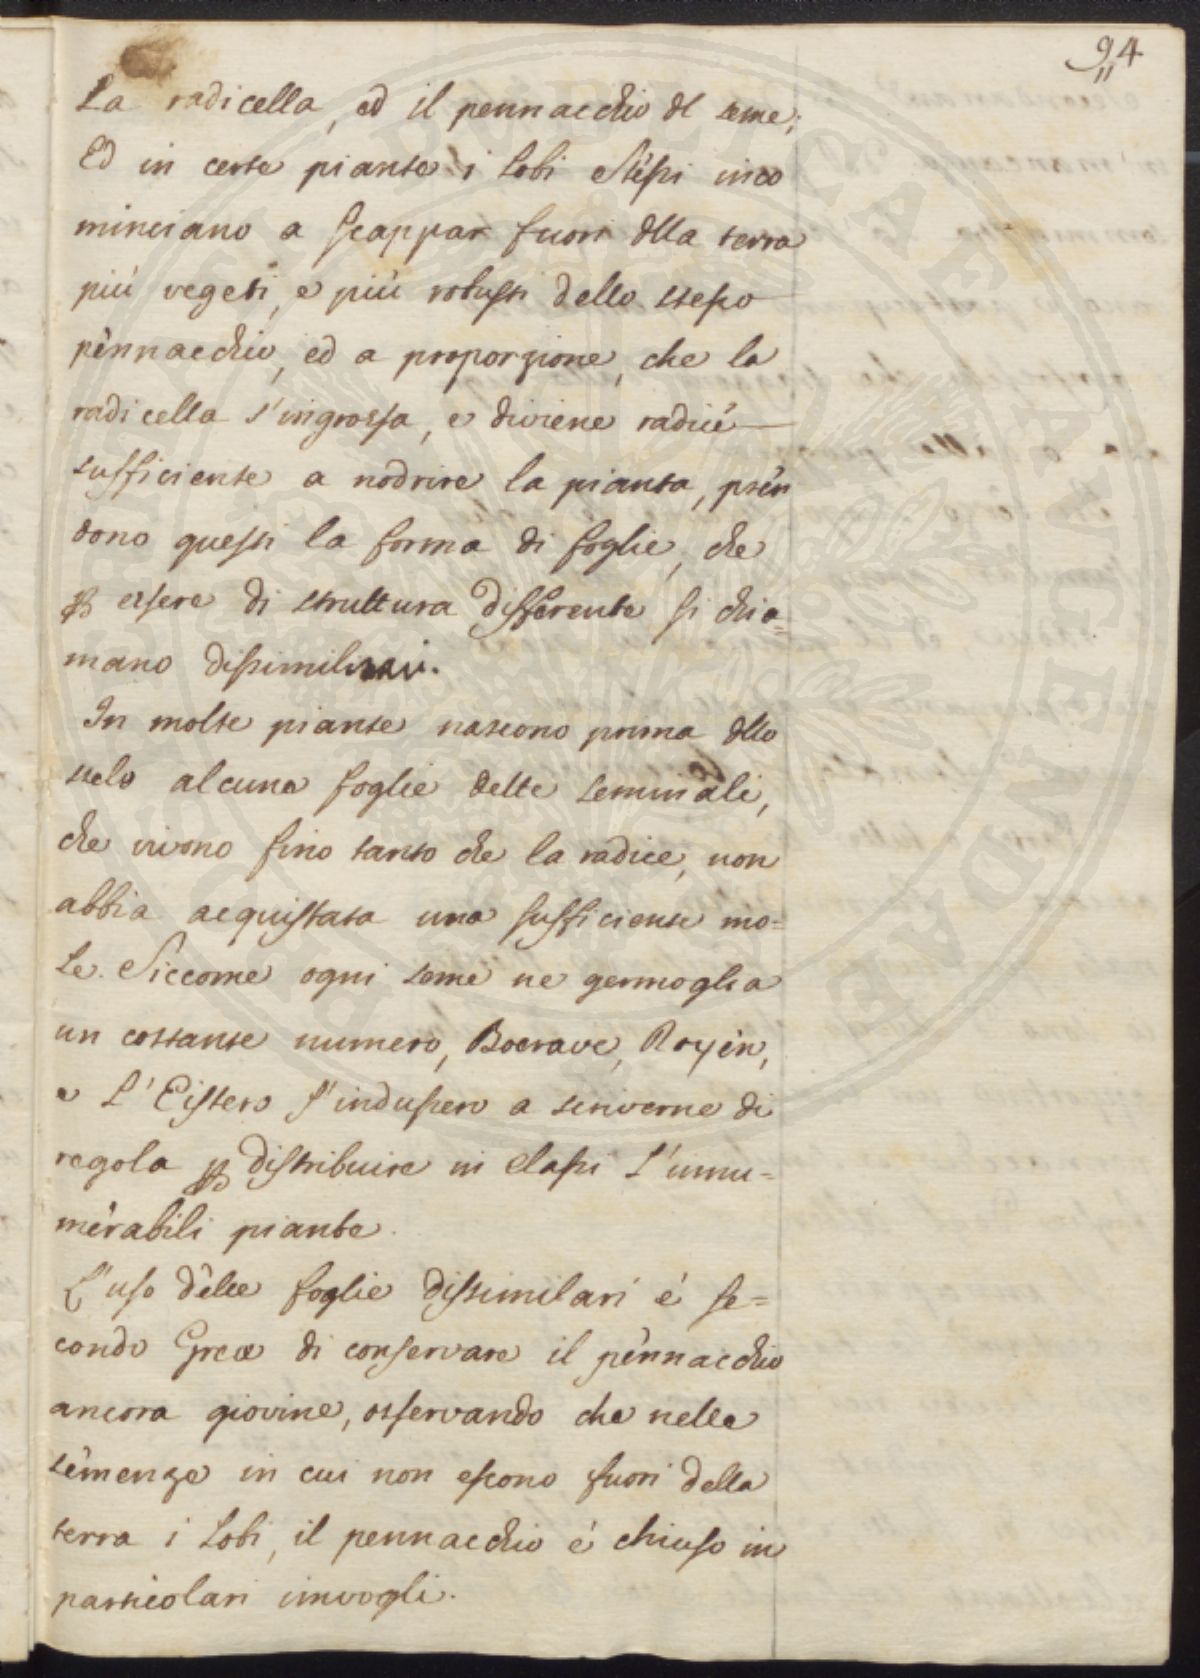 94
La radicella, ed il pennacchio dl seme;
Ed in certe piante i Lobi Stessi inco
minciano a scappar fuori dlla terra
più vegeti, e più robusti dello stesso
pennacchio, ed a proporzione, che la
radicella s'ingrossa, e diviene radice
sufficiente a nodrire la pianta, pren
dono questi la forma di foglie, che
p essere di struttura differente si chia=
mano dissimilari.
In molte piante nascono prima dllo
stelo alcune foglie dette seminali,
che vivono fino tanto che la radice, non
abbia acquistata una sufficiente mo=
le. Siccome ogni seme ne germoglia
un costante numero, Boerave, Royen,
e L'Eistero s'indussero a servirne di
regola p distribuire in classi l'innu=
merabili piante.
L'uso delle foglie dissimilari è se=
condo Greco di conservare il pennacchio
ancora giovine, osservando che nelle
semenze in cui non escono fuori della
terra i Lobi, il pennacchio è chiuso in
particolari invogli.
PVBLICAE FAVENDAE